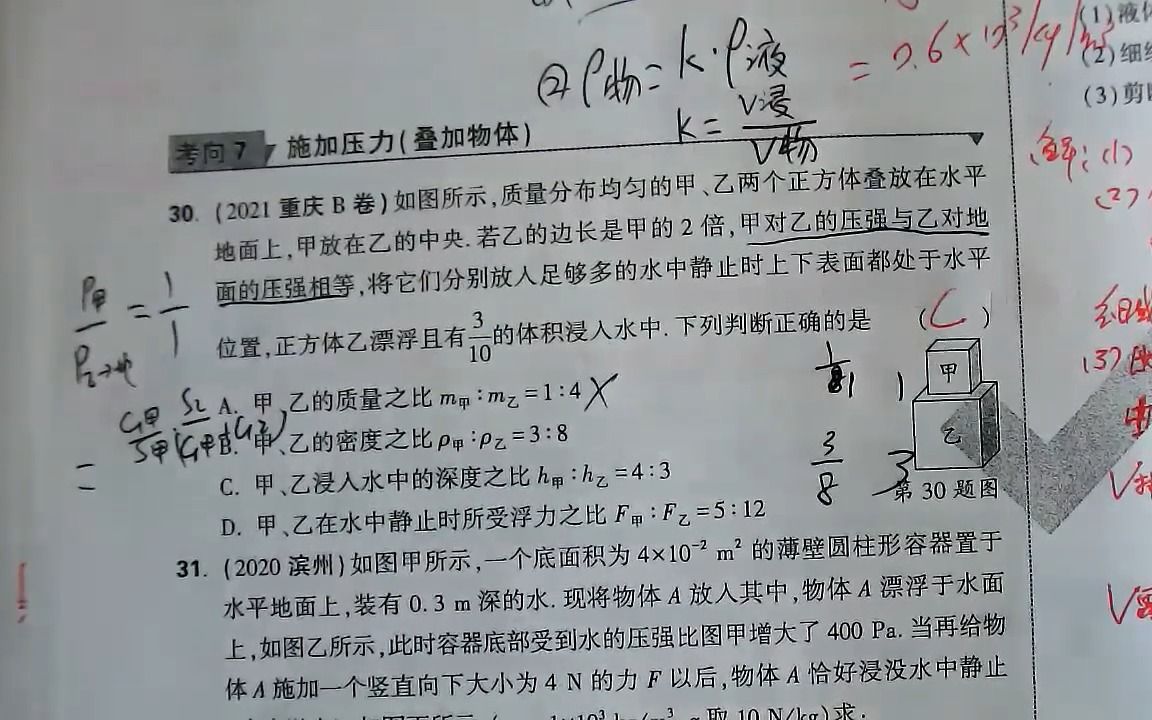 ② ρ物 = k·ρ液 = 0.6×10³/kg/m³
k = V浸/V物
(1)液体
(2)细
(3)剪
考向7 施加压力(叠加物体)
解:(1)
(2)
30. (2021重庆B卷)如图所示,质量分布均匀的甲、乙两个正方体叠放在水平
地面上,甲放在乙的中央.若乙的边长是甲的2倍,甲对乙的压强与乙对地
面的压强相等,将它们分别放入足够多的水中静止时上下表面都处于水平
位置,正方体乙漂浮且有3/10的体积浸入水中.下列判断正确的是 ( C )
P甲/P乙→地 = 1/1
A. 甲、乙的质量之比m甲:m乙=1:4 X
B. 甲、乙的密度之比ρ甲:ρ乙=3:8
C. 甲、乙浸入水中的深度之比h甲:h乙=4:3
D. 甲、乙在水中静止时所受浮力之比F甲:F乙=5:12
甲
乙
1
3
3/8
第30题图
(3)
31. (2020滨州)如图甲所示,一个底面积为4×10⁻² m²的薄壁圆柱形容器置于
水平地面上,装有0.3 m深的水.现将物体A放入其中,物体A漂浮于水面
上,如图乙所示,此时容器底部受到水的压强比图甲增大了400 Pa.当再给物
体A施加一个竖直向下大小为4 N的力F以后,物体A恰好浸没水中静止
取10 N/kg)求: